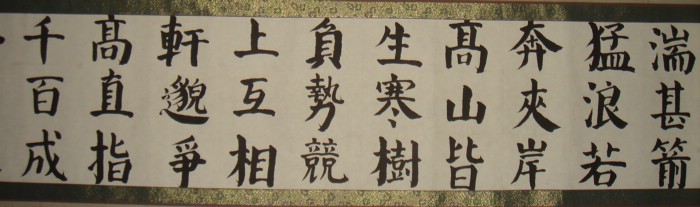 湍甚箭
猛浪若
奔夾岸
髙山皆
生寒樹
負勢競
上互相
軒邈爭
髙直指
千百成